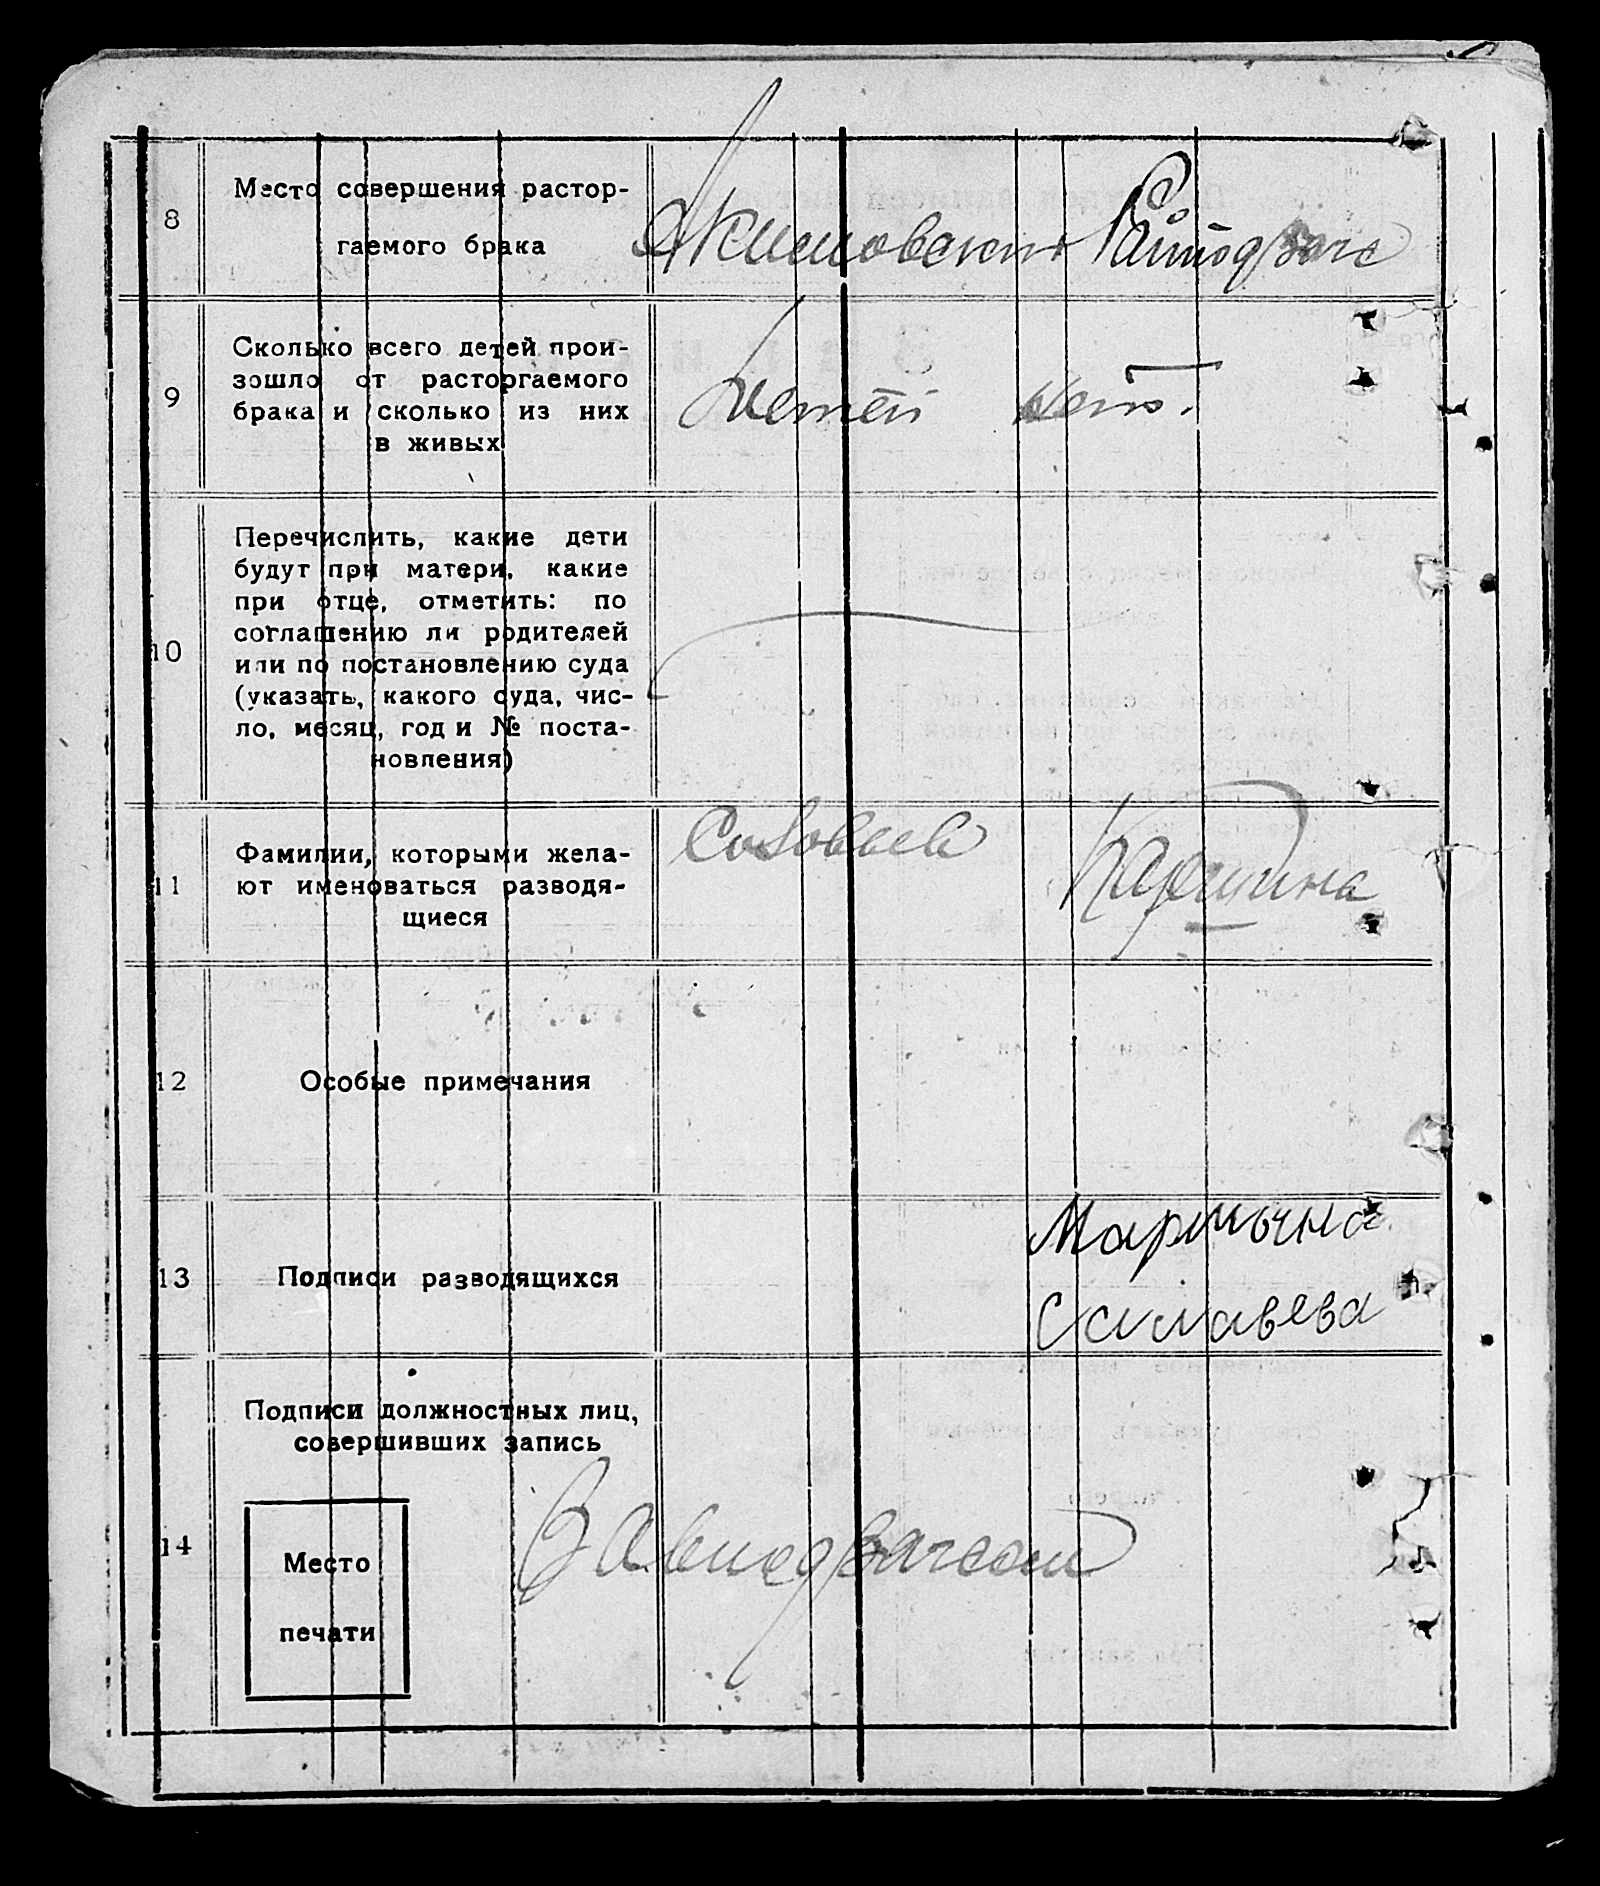 8
Место совершения растор-
гаемого брака
Акимовский Райподзагс
9
Сколько всего детей прои-
зошло от расторгаемого
брака и сколько из них
в живых
Детей нет.
10
Перечислить, какие дети
будут при матери, какие
при отце, отметить: по
соглашению ли родителей
или по постановлению суда
(указать, какого суда, чис-
ло, месяц, год и № поста-
новления)
11
Фамилии, которыми жела-
ют именоваться разводя-
щиеся
Соловьев
12
Особые примечания
13
Подписи разводящихся
14
Подписи должностных лиц,
совершивших запись
Место
печати